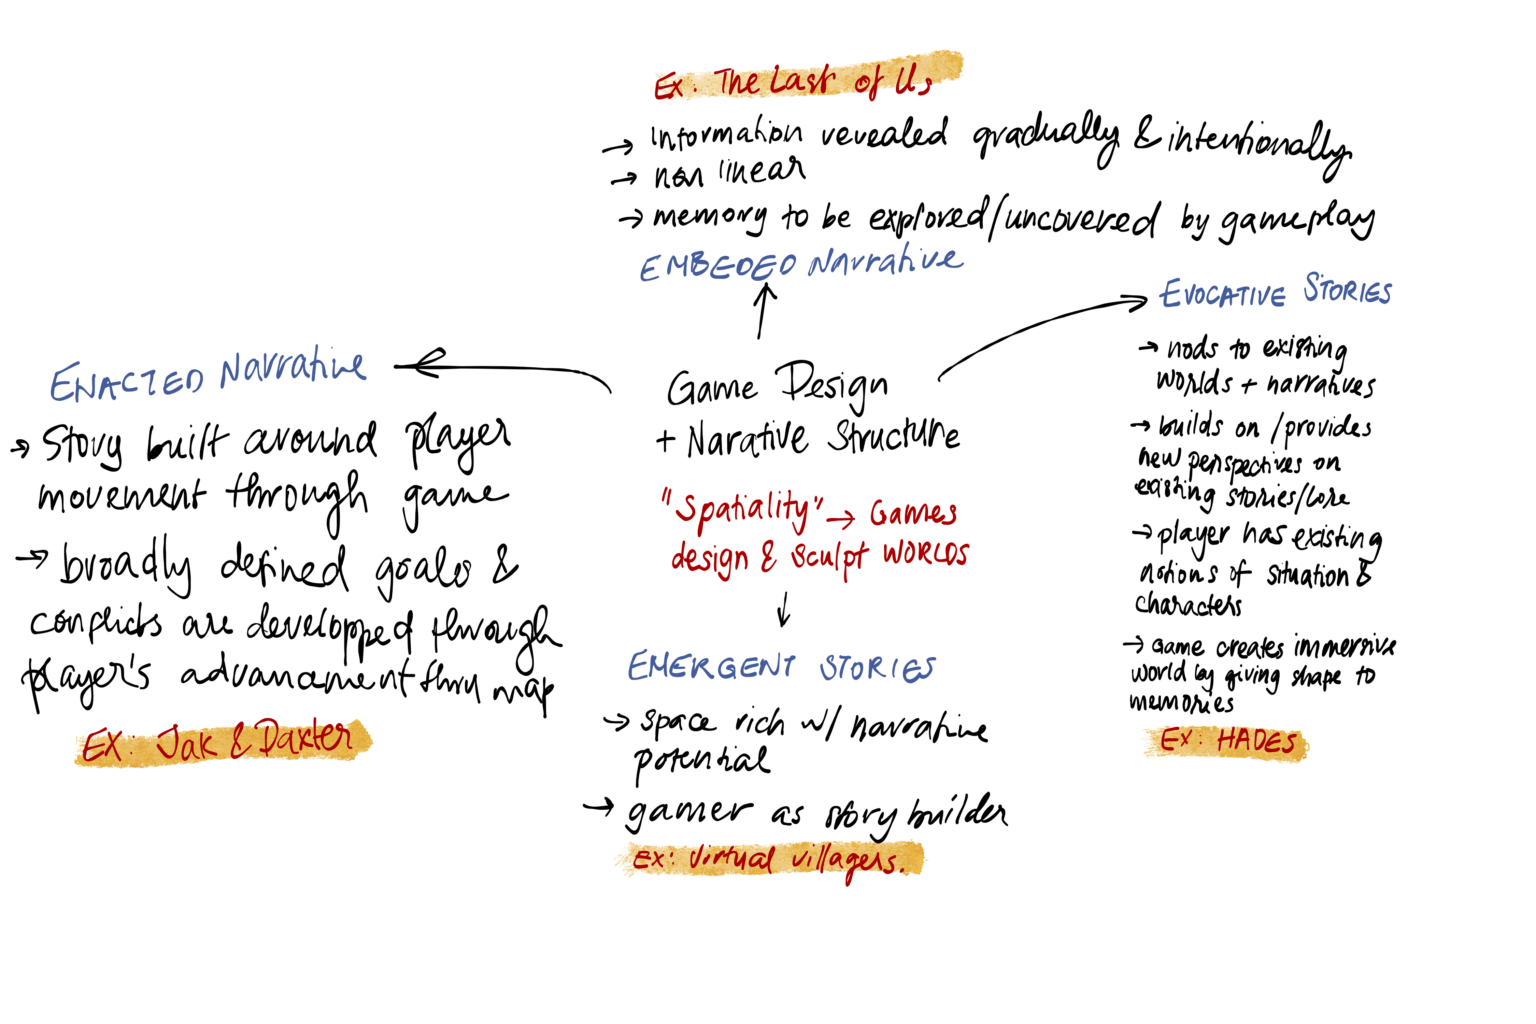 Ex: The Last of Us
→ information revealed gradually & intentionally
→ non linear
→ memory to be explored/uncovered by gameplay
EMBEDED Narrative
Game Design
+ Narative Structure
"Spatiality" → Games
design & sculpt WORLDS
ENACTED Narrative
→ Story built around player
movement through game
→ broadly defined goals &
conflicts are developped through
player's advancement thru map
EX: Jak & Daxter
EMERGENT STORIES
→ space rich w/ narrative
potential
→ gamer as story builder
Ex: Virtual villagers.
EVOCATIVE STORIES
→ nods to existing
worlds + narratives
→ builds on / provides
new perspectives on
existing stories/lore
→ player has existing
notions of situation &
characters
→ Game creates immersive
world by giving shape to
memories
Ex: HADES